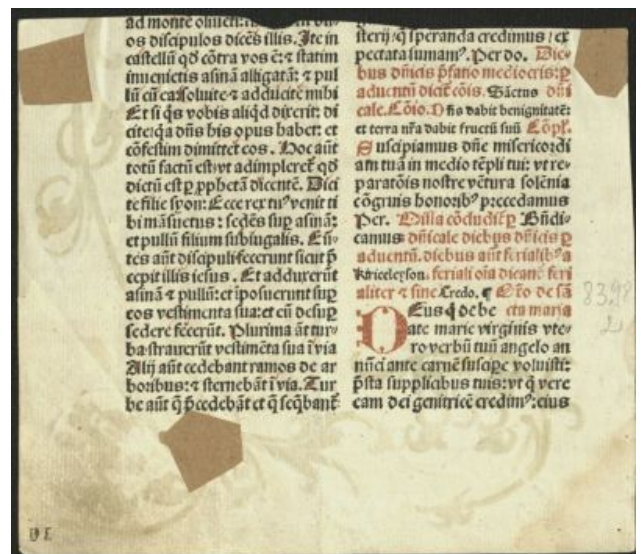 ad monte oliueti: tūc misit du
os discipulos dicēs illis. Ite in
castellū qd̄ cōtra vos ē: ⁊ statim
inuenietis asinā alligatā: ⁊ pul
lū cū ea: soluite ⁊ adducite mihi
Et si q̄s vobis aliqd̄ dixerit: di
cite: qa dn̄s his opus habet: et
cōfestim dimittet eos. Hoc aūt
totū factū est: vt adimpleret̄ qd̄
dictū est ꝑ ꝓphetā dicentē. Dici
te filie syon: Ecce rex tuꝰ venit ti
bi māsuetus: sedēs suꝑ asinā:
et pullū filium subiugalis. Eū-
tes aūt discipuli fecerunt sicut p̄
cepit illis iesus. Et adduxerūt
asinā ⁊ pullū: et īposuerunt suꝑ
eos vestimenta sua: et eū desuꝑ
sedere fecerūt. Plurima aūt tur-
ba strauerūt vestimēta sua ī via
Alij aūt cedebant ramos de ar
boribus: ⁊ sternebāt ī via. Tur
be aūt q̄ p̄cedebāt et q̄ seq̄bant̄
sterij: q̄ speranda credimus: ex
pectata sumamꝰ. Per do. Die-
bus dn̄icis p̄fatio mediocris: ꝑ
aduentū dicit̄ cōis. Sāctus dn̄i
cale. Cōio. Dn̄s dabit benignitatē:
et terra nr̄a dabit fructū suū Cōpl̄.
Suscipiamus dn̄e misericordi
am tuā in medio tēpli tui: vt re-
paratōis nostre vētura solēnia
cōgruis honoribꝰ p̄cedamus
Per. Milla cōcludit̄ ꝑ Bn̄di-
camus dn̄icale diebus dn̄icis ꝑ
aduentū. diebus aūt ferialibꝰ a
Kirieleyson. feriali oīa dicant̄ feri
aliter ⁊ sine Credo. ¶ Cō̄o de sā
Deus q̄ de be cta maria
ate marie virginis vte-
ro verbū tuū angelo an
nūciante carnē suscipe voluisti:
p̄sta supplicibus tuis: vt q̄ vere
eam dei genitricē credimꝰ: eius
83.98
2